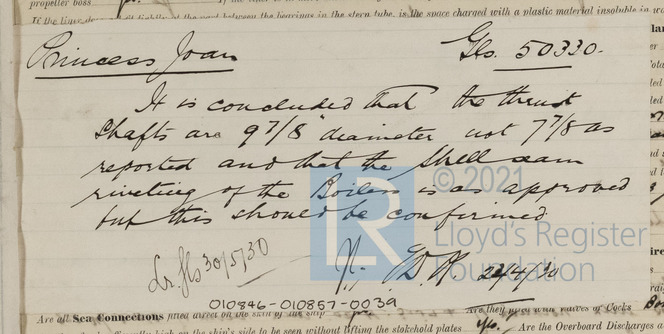 propeller boss
If the liner does not fit tightly at the part between the bearings in the stern tube, is the space charged with a plastic material insoluble in
Princess Joan Gls. 50330.
It is concluded that the thrust
shafts are 9 7/8" diameter not 7 7/8 as
reported and that the shell seam
riveting of the Boilers is as approved
but this should be confirmed
© 2021
LR
Lloyd's Register
Foundation
Lr. Gls 30/5/30
24/4/30
010846-010857-0039
Are all Sea Connections fitted direct on the skin of the ship
Are they fitted with valves or Cocks
on the ship's side to be seen without lifting the stokehold plates yes. Are the Overboard Discharges